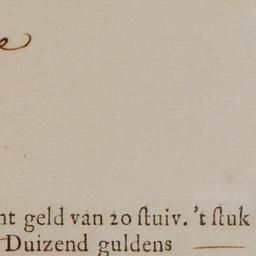 nt geld van 20 ſtuiv. 't ſtuk
Duizend guldens